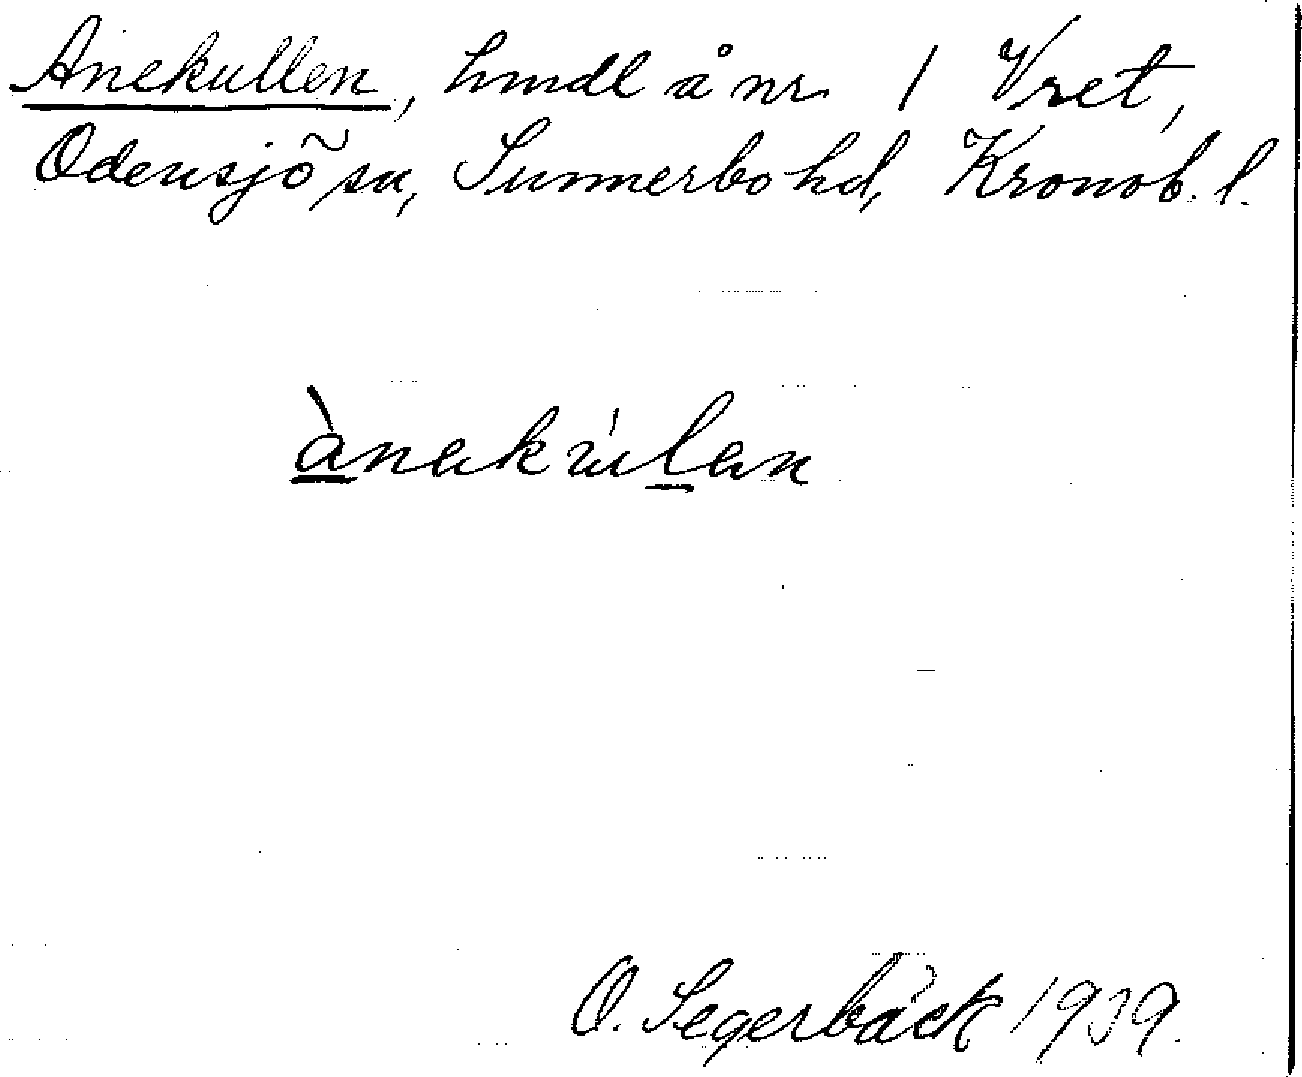 Anekullen, hmdl å nr 1 Vret,
Odensjö sn, Sunnerbo hd, Kronob. l.
ànakúlan
O. Segerbäck 1939.